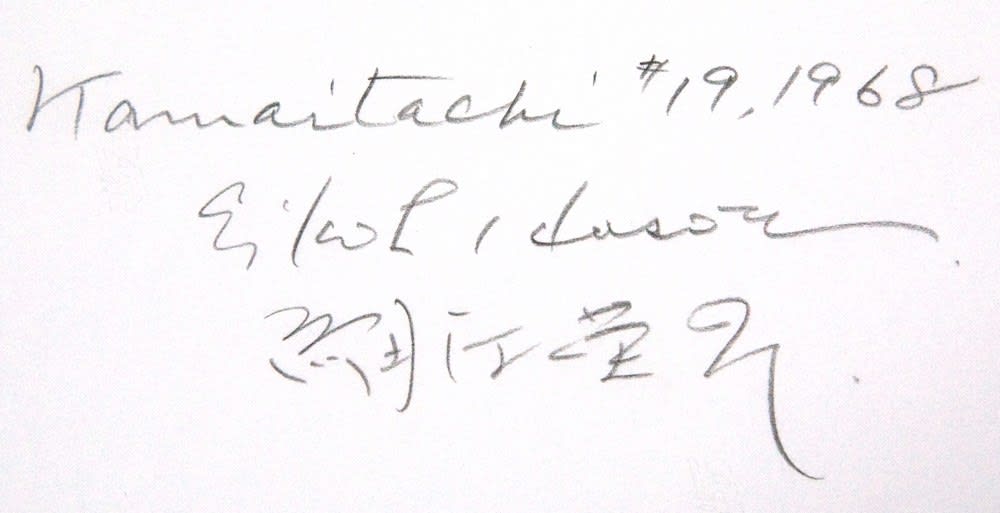 Kamaitachi #19, 1968
Eikoh Hosoe
細江英公